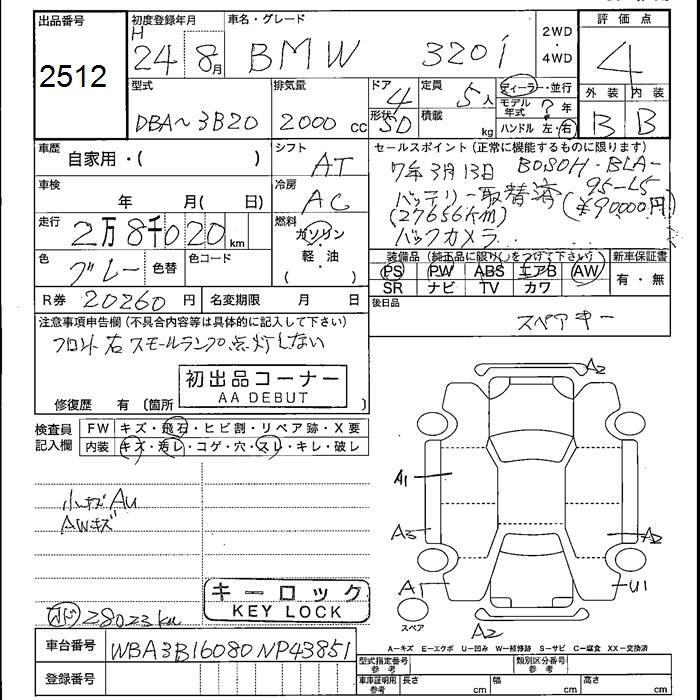 出品番号 初度登録年月 車名・グレード 2WD・4WD 評価点
2512 H 24年 8月 BMW 320i 4
型式 排気量 ドア 定員 ディーラー・並行 外装 内装
DBA~3B20 2000cc 4 5人 モデル年式 ? 年 B B
形状 5D 積載 kg ハンドル 左・右
車歴 シフト セールスポイント(正常に機能するものに限ります)
自家用・( ) AT 7年3月13日 BOSOH・BLA-
車検 冷房 バッテリー取替済 95-L5
年 月( 日) AC (27656Km) (¥90000円)
走行 燃料 バックカメラ
2万8千020km ガソリン・軽・油 ( )
色 色替 色コード 装備品(純正品に限り○をつけて下さい) 新車保証書
グレー PS PW ABS エアB AW 有・無
SR ナビ TV カワ
R券 20260円 名変期限 月 日 後日品
スペアキー
注意事項申告欄(不具合内容等は具体的に記入して下さい)
フロント右スモールランプ点灯しない
初出品コーナー
AA DEBUT
修復歴 有(箇所 )
検査員記入欄 FW キズ・飛石・ヒビ割・リペア跡・X要
内装 キズ・汚レ・コゲ・穴・スレ・キレ・破レ
A2
A1
小キズAu
AWキズ
A3 A2
A1 U1
キーロック
KEY LOCK
スペア
28023km
A2
A-キズ E-エクボ U-凹み W-補修跡 S-サビ C-腐食 XX-交換済
車台番号 WBA3B16080NP43851
型式指定番号 参考 類別区分番号 参考
登録番号 車庫証明用 参考 長さ cm 幅 cm 高さ cm